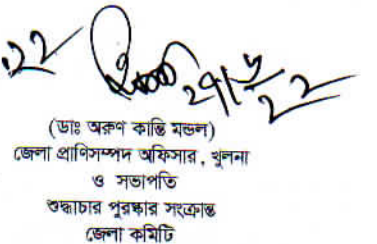 ২২
২৭/৬/২২
(ডাঃ অরুণ কান্তি মন্ডল)
জেলা প্রাণিসম্পদ অফিসার, খুলনা
ও সভাপতি
শুদ্ধাচার পুরষ্কার সংক্রান্ত
জেলা কমিটি